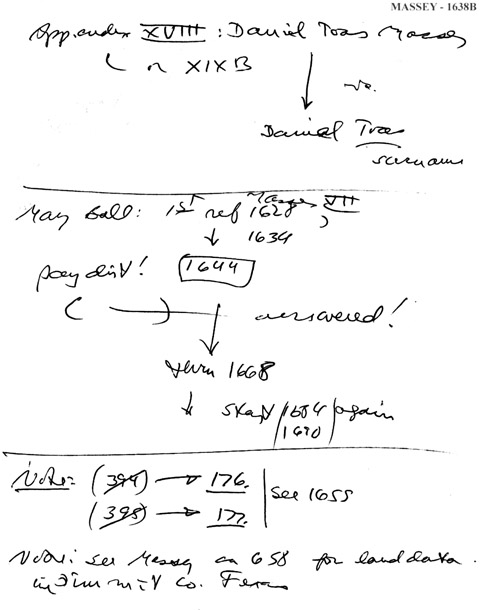 MASSEY - 1638B
Appendix XVIII : Daniel Tras Massey
( or XIXB
vs.
Daniel Tras
surname
May Ball: 1st ref 1628, Massey VII
1634
pay dirt! 1644
( ) answered!
thru 1668
start /1684/ again
1690
Note: (394) → 176.
(395) → 177.
See 1655
Note: see Massey on 658 for land data
in Dimmit Co. Texas